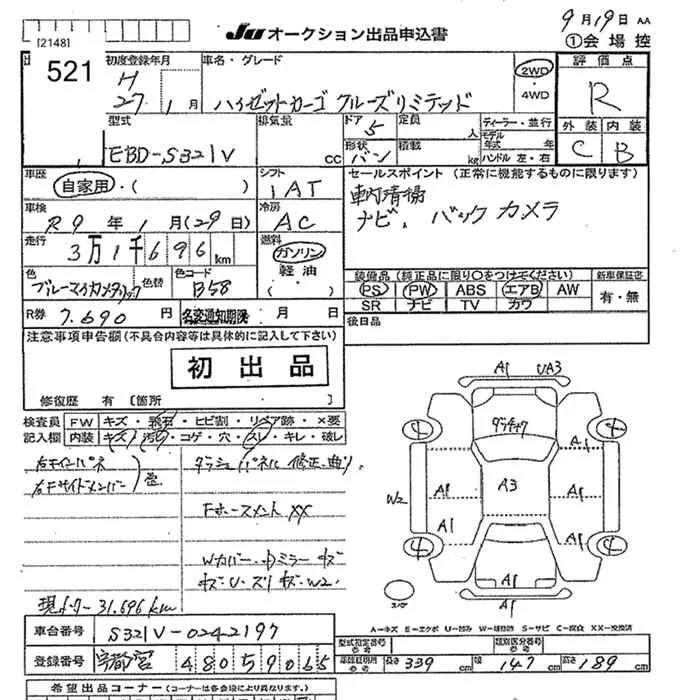 [2148]
521
JU オークション出品申込書
9月19日 AA
①会場控
初度登録年月
車名・グレード
評価点
H
27 1月
ハイゼットカーゴ クルーズリミテッド
2WD
・
4WD
R
外装 内装
C B
型式
排気量
ドア
5
定員
人
ディーラー・並行
EBD-S321V
cc
形状
バン
積載
kg
モデル
年式 年
ハンドル 左・右
車歴
自家用・( )
シフト
1AT
セールスポイント (正常に機能するものに限ります)
車内清掃
ナビ、 バックカメラ
車検
R9年1月(29日)
冷房
AC
走行
3万1千696km
燃料
ガソリン
軽油
( )
色
色替
色コード
B58
装備品(純正品に限り○をつけてください)
新車保証書
PS PW ABS エアB AW
有・無
SR ナビ TV カワ
R券 7,690円
名変通知期限 月 日
後日品
注意事項申告欄(不具合内容等は具体的に記入して下さい)
初出品
修復歴 有 〔箇所 〕
検査員
記入欄
FW キズ・飛石・ヒビ割・リペア跡・×要
内装 キズ・汚れ・コゲ・穴・スレ・キレ・破レ
右F インパネ
右Fサイドメンバー
ダッシュパネル 修正、曲り
Fホースメント XX
Wカバー・中ミラーキズ
キズU・ズリキズ・W2.
現メーター 31,696km
A1 UA3
A1
A3
W2
A1
A1
A1
A1
A1
4 4 4 4
スペア
A-キズ E-エクボ U-凹み W-補修跡 S-サビ C-腐食 XX-交換済
車台番号 S321V-0242197
登録番号 宇都宮 480 ち 9065
型式指定番号
類別区分番号
長さ 339cm 幅 147cm 高さ 189cm
希望出品コーナー(コーナーは各会場により異なります。)